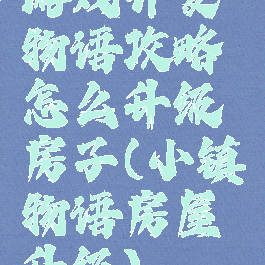 物语攻略
怎么升级
房子(小镇
物语房屋
升级)